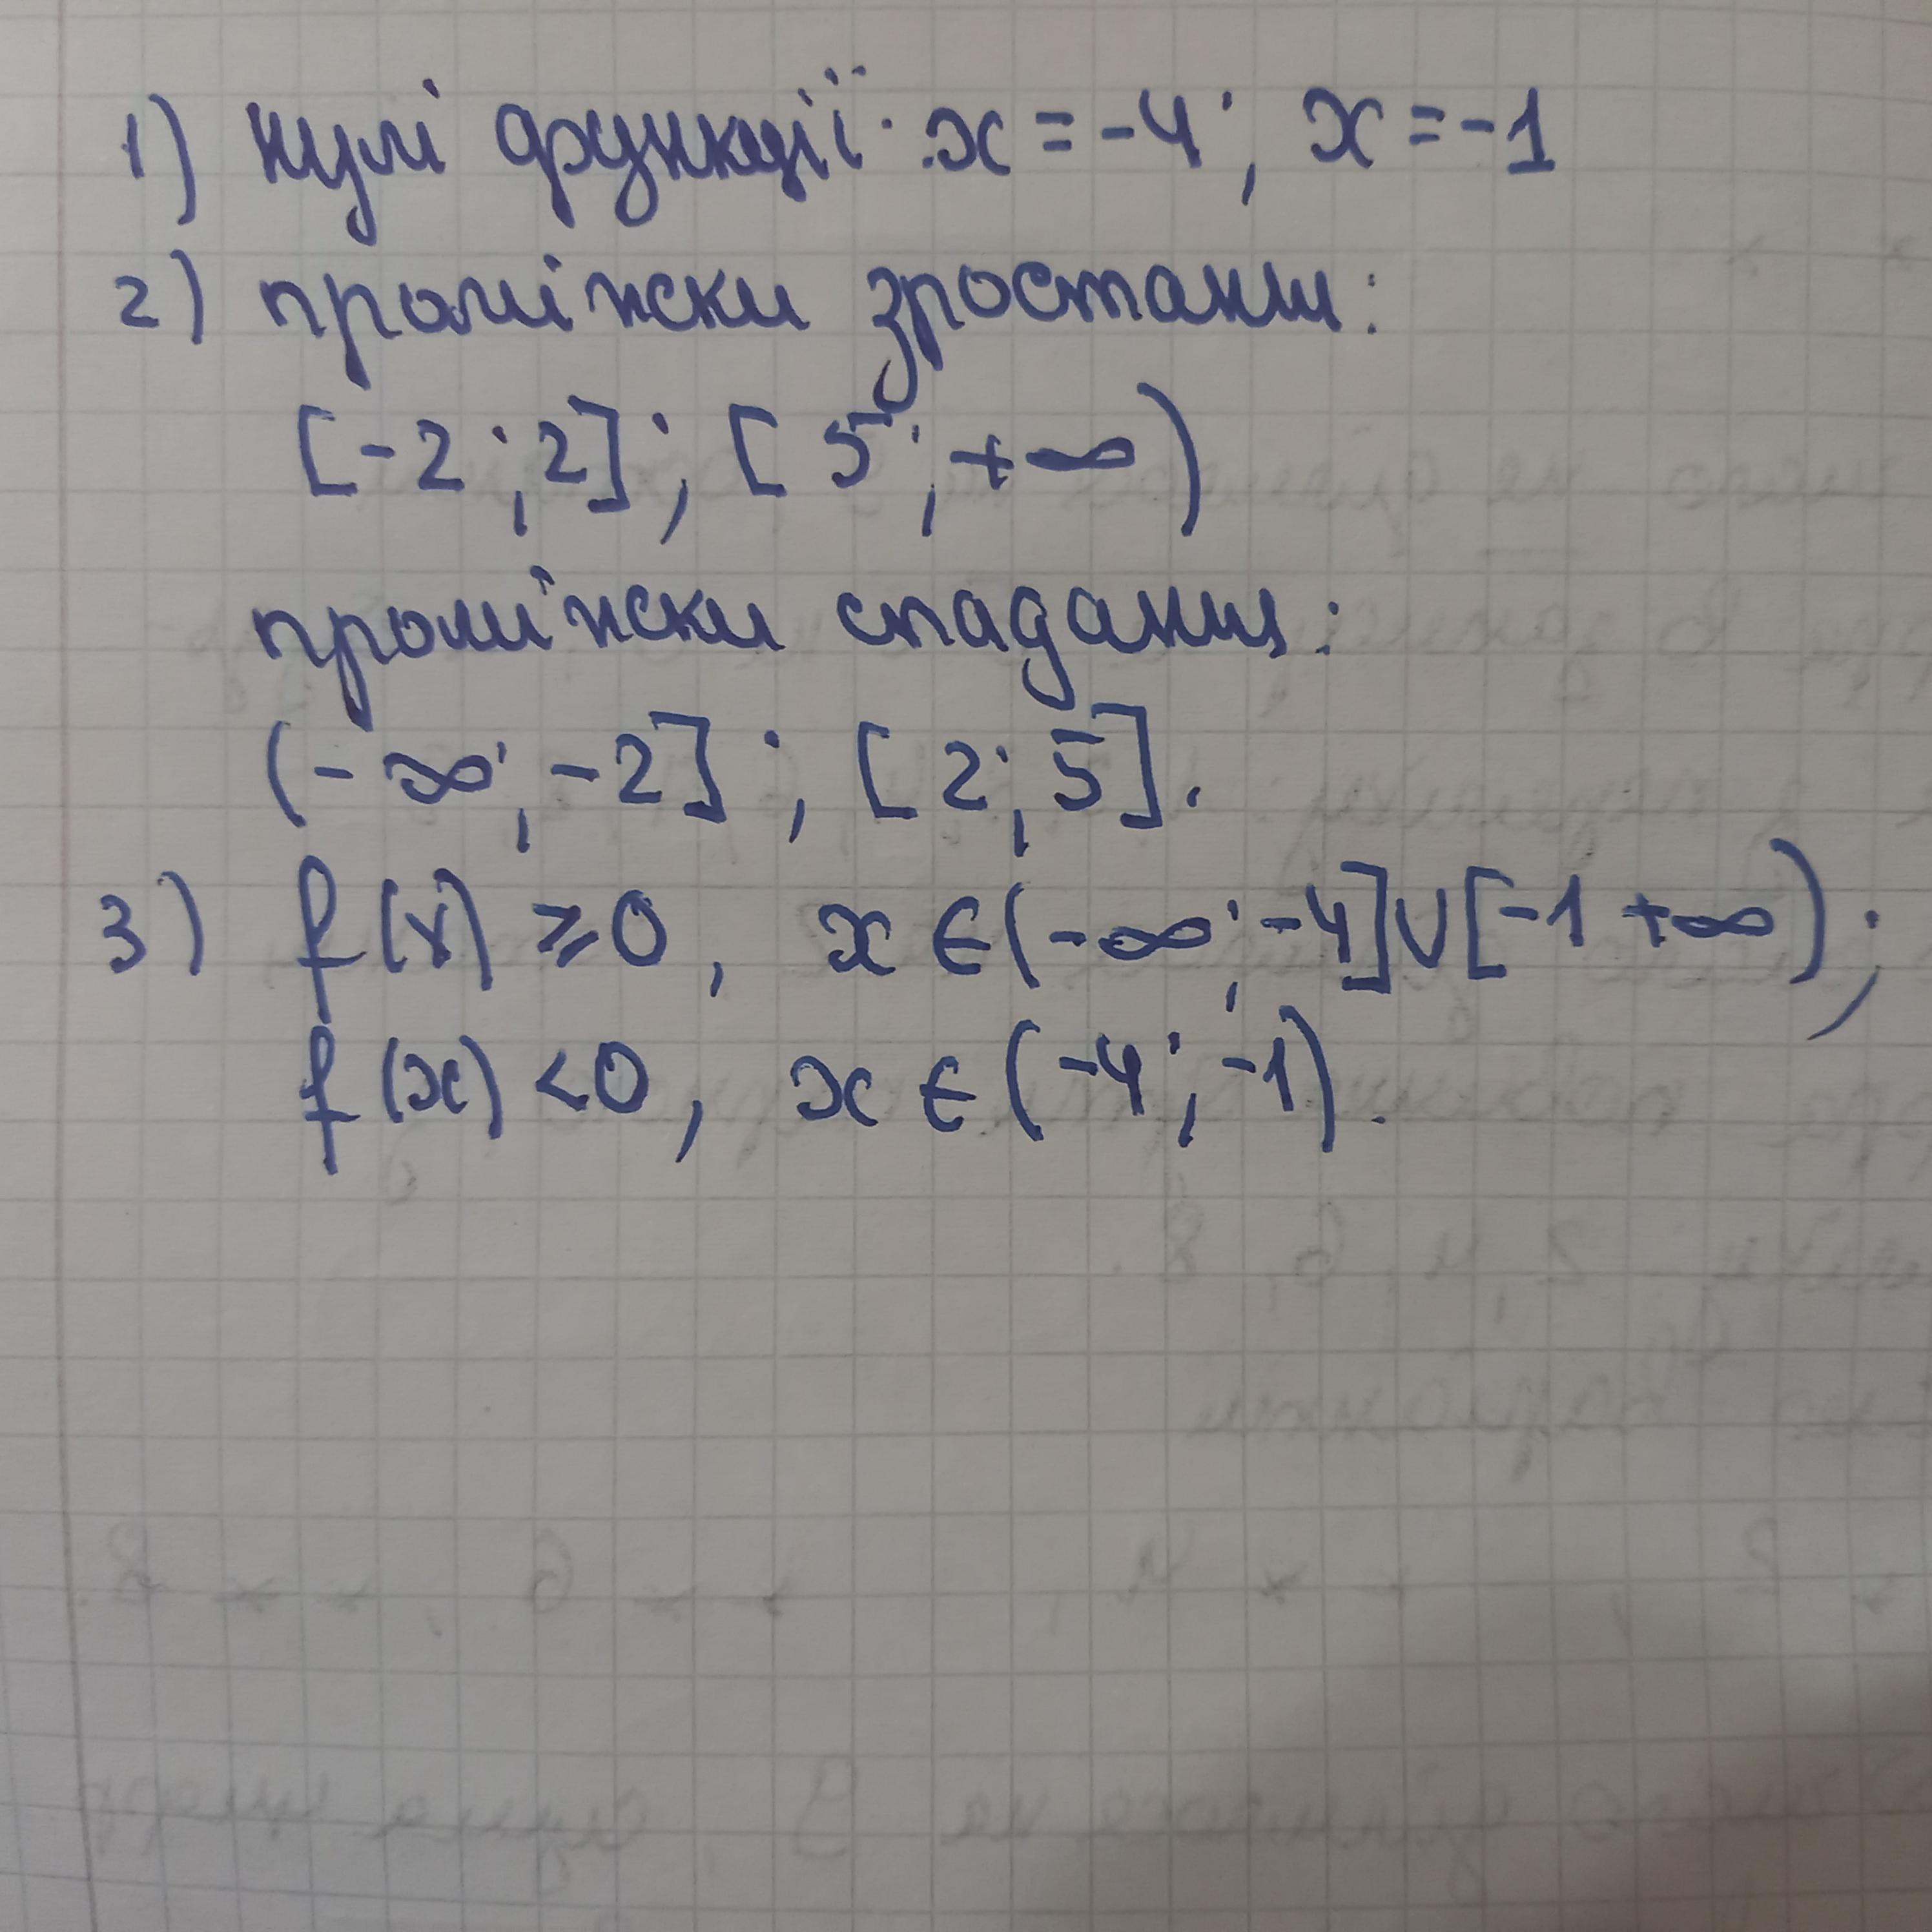 1) нулі функції: x = -4; x = -1
2) проміжки зростання:
[-2; 2]; [5; +∞)
проміжки спадання:
(-∞; -2]; [2; 5].
3) f(x) ≥ 0, x ∈ (-∞; -4] ∪ [-1 +∞);
f(x) < 0, x ∈ (-4; -1).